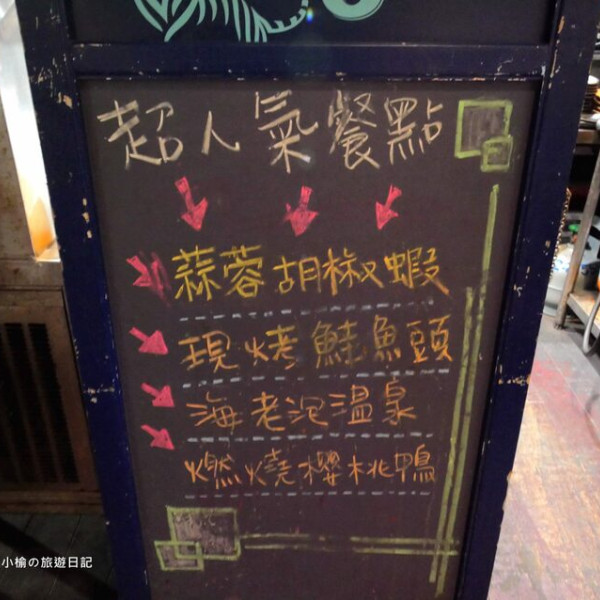 超人氣餐點
蒜蓉胡椒蝦
現烤鮭魚頭
海老泡溫泉
燃燒櫻桃鴨
小榆の旅遊日記